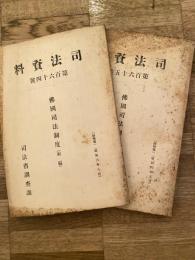 司法資料
第百六十四號
佛國司法制度(前編)
司法省調査課
司法資
第百六十五
佛國司法